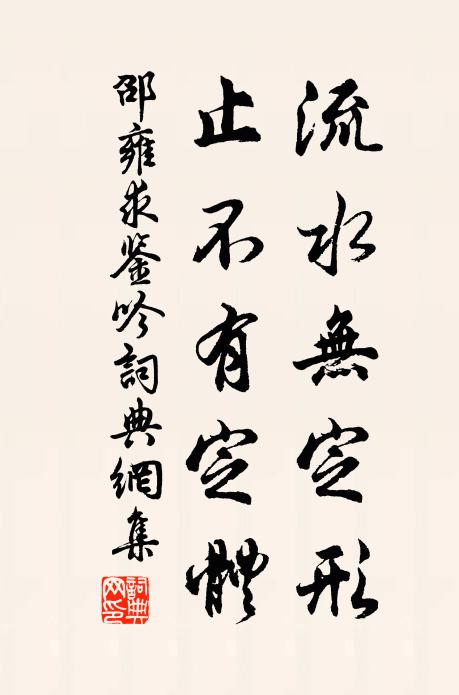 流水無定形
止不有定體
邵雍求鉴吟詞典網集
詞典网印